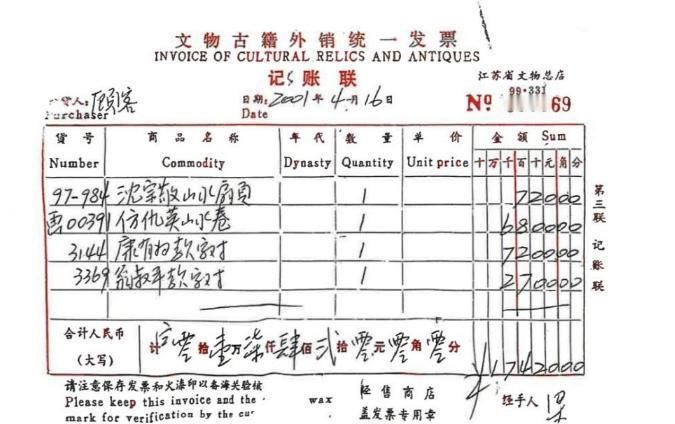 文物古籍外销统一发票
INVOICE OF CULTURAL RELICS AND ANTIQUES
记账联
江苏省文物总店
99·331
货人: 顾客
Purchaser
日期: 2001年4月16日
Date
No 69
货号 商品名称 年代 数量 单价 金额 Sum
Number Commodity Dynasty Quantity Unit price 十万千百十元角分
97-984 沈宗敬山水扇页 1 72000
曹00391 仿仇英山水卷 1 680000
3144 康有为款字对 1 720000
3369 翁叔平款字对 1 270000
合计人民币
(大写)
计 零拾壹万柒仟肆佰贰拾零元零角零分 ¥1742000
第三联 记账联
请注意保存发票和火漆印以备海关验核
Please keep this invoice and the wax
mark for verification by the cu
经售商店
盖发票专用章
经手人 梁